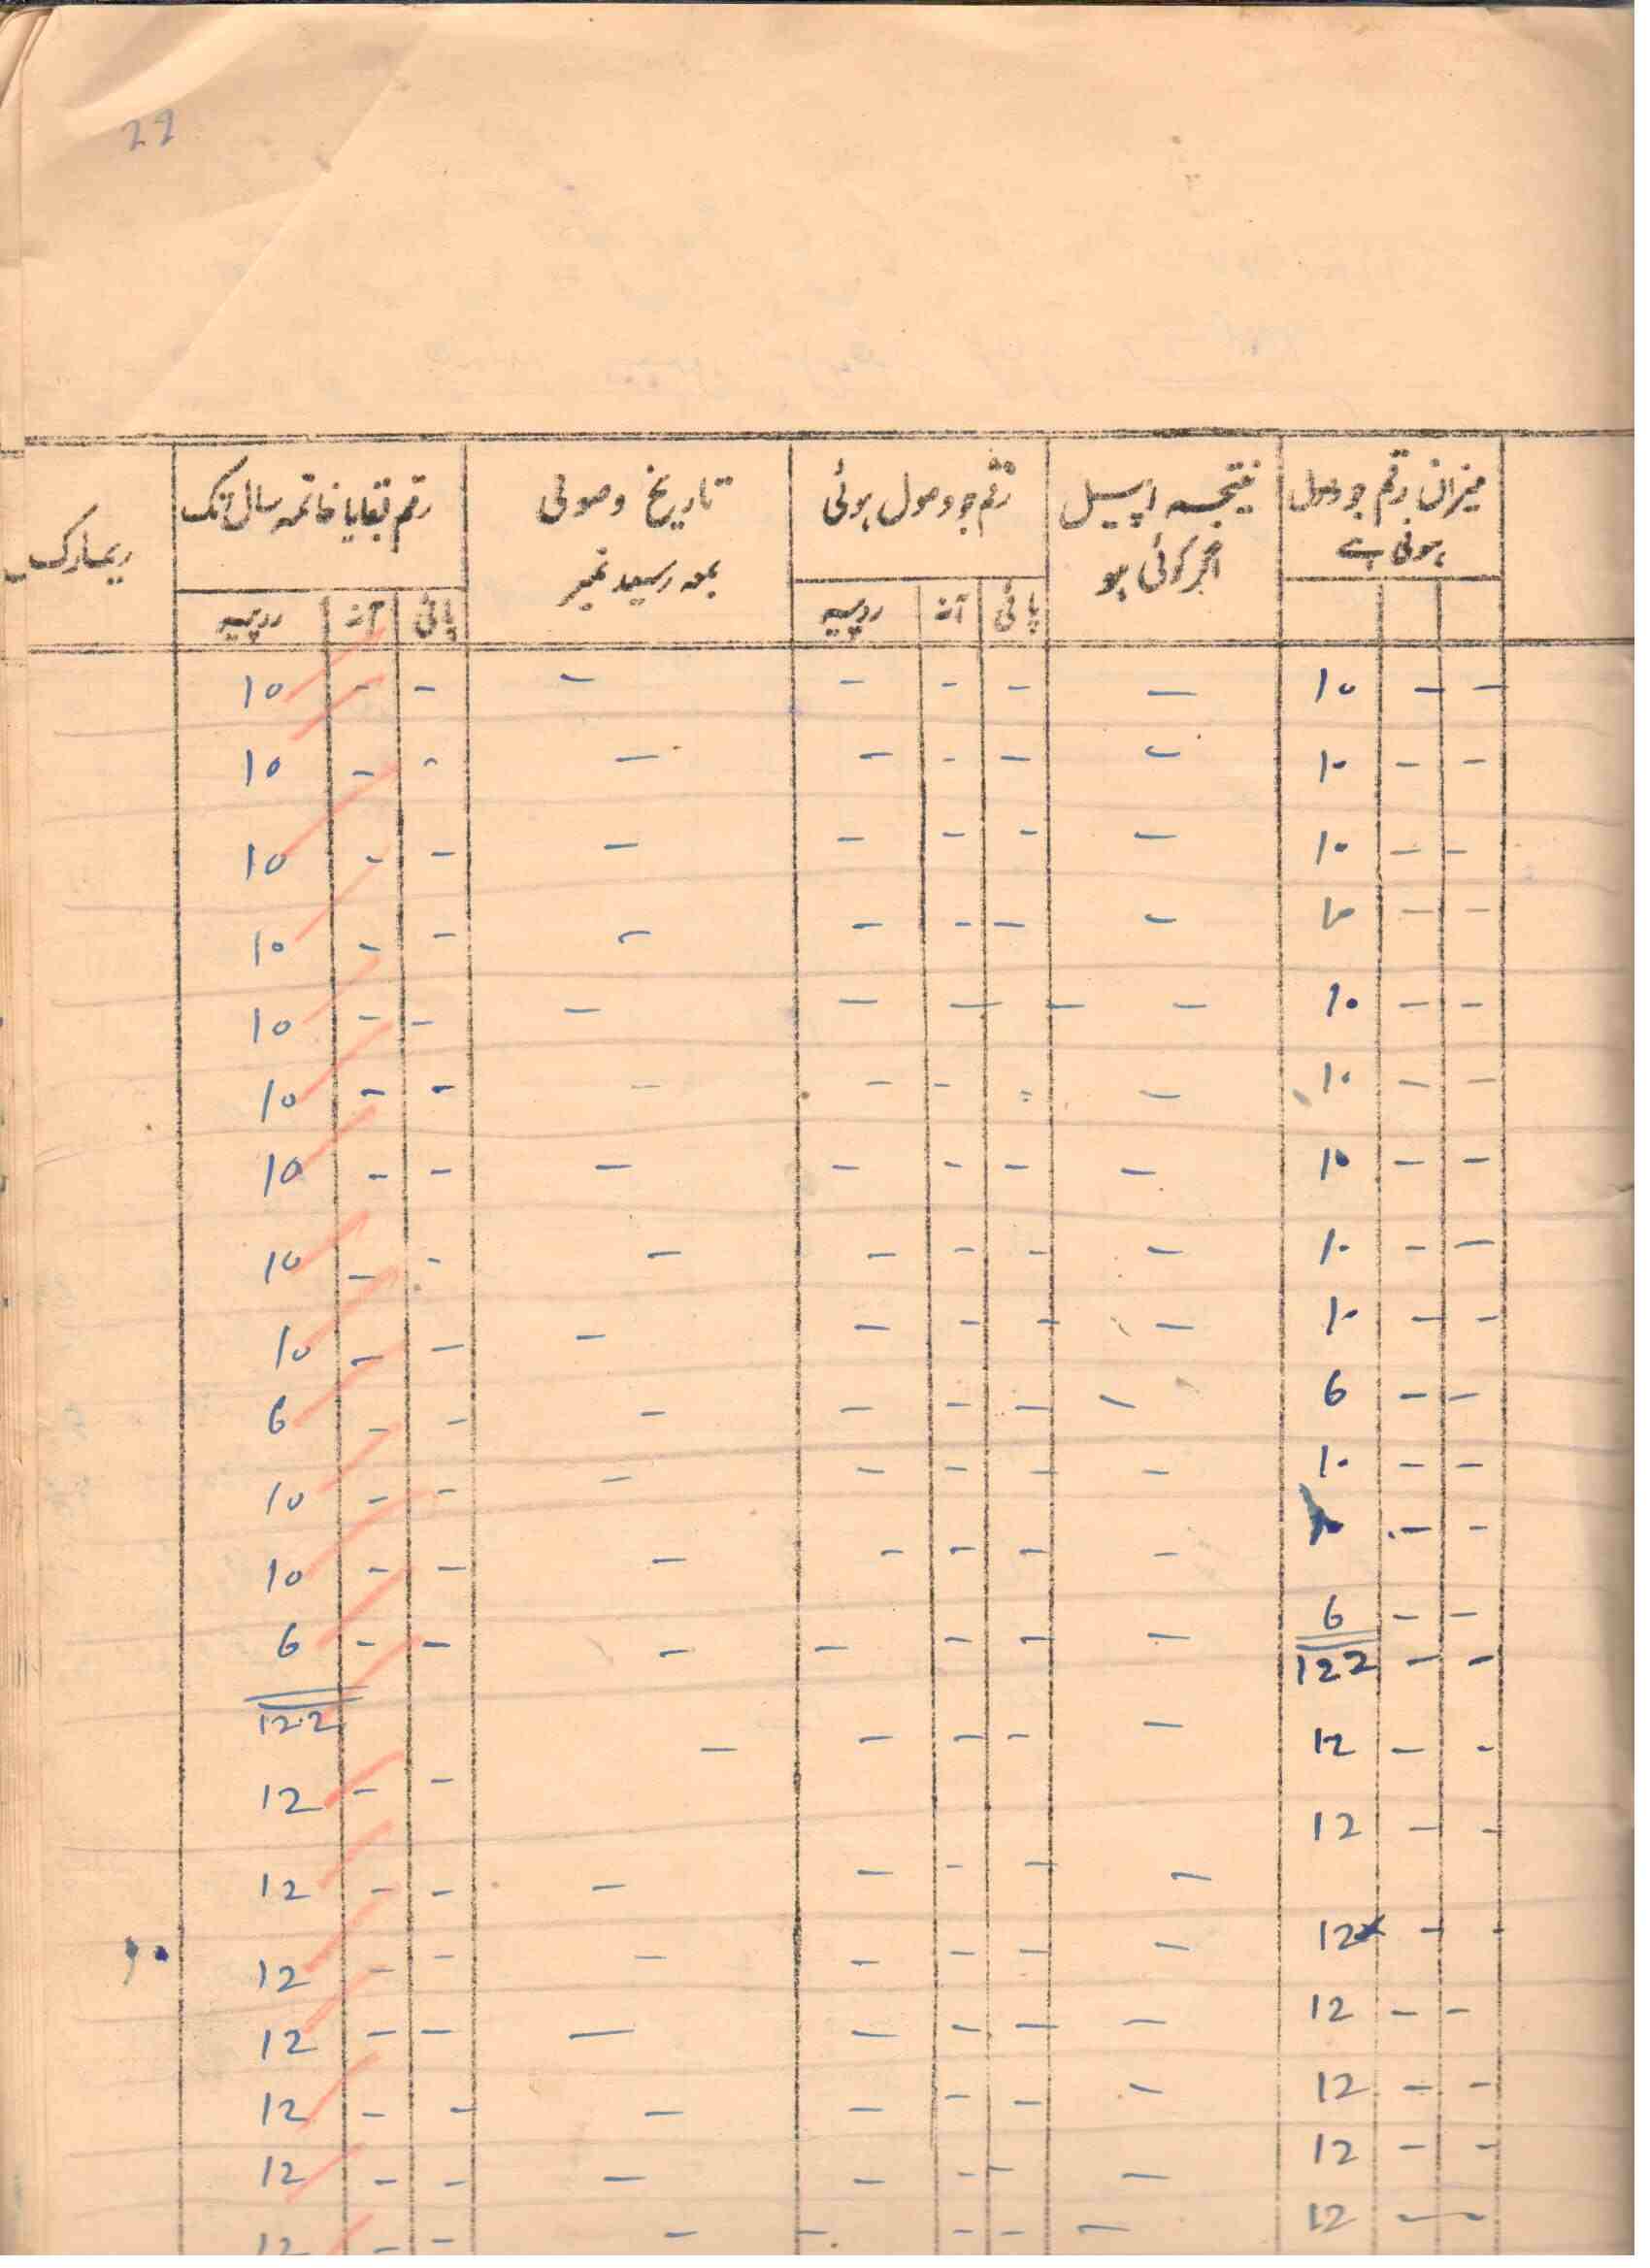 22
میزان رقم جو وصول ہوئی ہے | نتیجہ اپیل اگر کوئی ہو | رقم جو وصول ہوئی | تاریخ وصولی بمعہ رسید نمبر | رقم بقایا خاتمہ سال تک | ریمارکس
پائی آنہ روپیہ | پائی آنہ روپیہ
- - 10 | - | - - - | - | - - 10
- - 10 | - | - - - | - | - - 10
- - 10 | - | - - - | - | - - 10
- - 10 | - | - - - | - | - - 10
- - 10 | - | - - - | - | - - 10
- - 10 | - | - - - | - | - - 10
- - 10 | - | - - - | - | - - 10
- - 10 | - | - - - | - | - - 10
- - 10 | - | - - - | - | - - 10
- - 6 | - | - - - | - | - - 6
- - 10 | - | - - - | - | - - 10
- - 10 | - | - - - | - | - - 10
- - 6 | - | - - - | - | - - 6
- - 122 | 122
- - 12 | - | - - - | - | - - 12
- - 12 | - | - - - | - | - - 12
- - 12 | - | - - - | - | - - 12
- - 12 | - | - - - | - | - - 12
- - 12 | - | - - - | - | - - 12
- - 12 | - | - - - | - | - - 12
- - 12 | - | - - - | - | - - 12